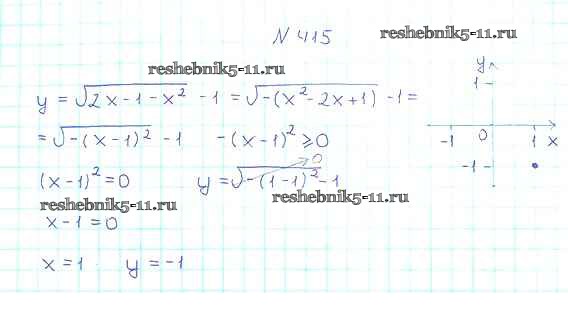 N 415
reshebnik5-11.ru
reshebnik5-11.ru
y = √(2x - 1 - x²) - 1 = √(-(x² - 2x + 1)) - 1 =
= √(-(x - 1)²) - 1    -(x - 1)² ⩾ 0
(x - 1)² = 0    y = √(-(1 - 1)²) - 1
0
reshebnik5-11.ru
reshebnik5-11.ru
x - 1 = 0
x = 1    y = -1
y
1
-1 0 1 x
-1